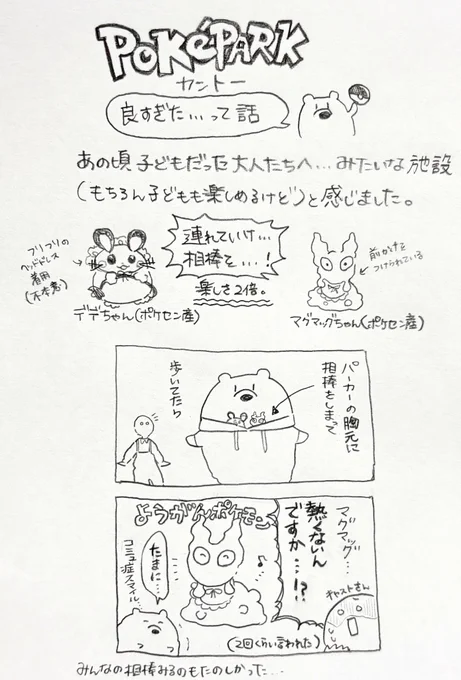 PokéPARK
カントー
良すぎた…って話
あの頃子どもだった大人たちへ…みたいな施設
(もちろん子どもも楽しめるけど)と感じました。
フリフリの
ヘッドドレス
着用
(不本意)
連れていけ…
相棒を…!
楽しさ2倍。
前かけを
つけられている
デデちゃん(ポケセン産)
マグマッグちゃん(ポケセン産)
パーカーの胸元に
相棒をしまって
歩いてたら
ようがんポケモン
マグマッグ…
熱くないん
ですか…!?
キャストさん
たまに…
コミュ症スマイル…
(2回くらい言われた)
みんなの相棒みるのもたのしかった…